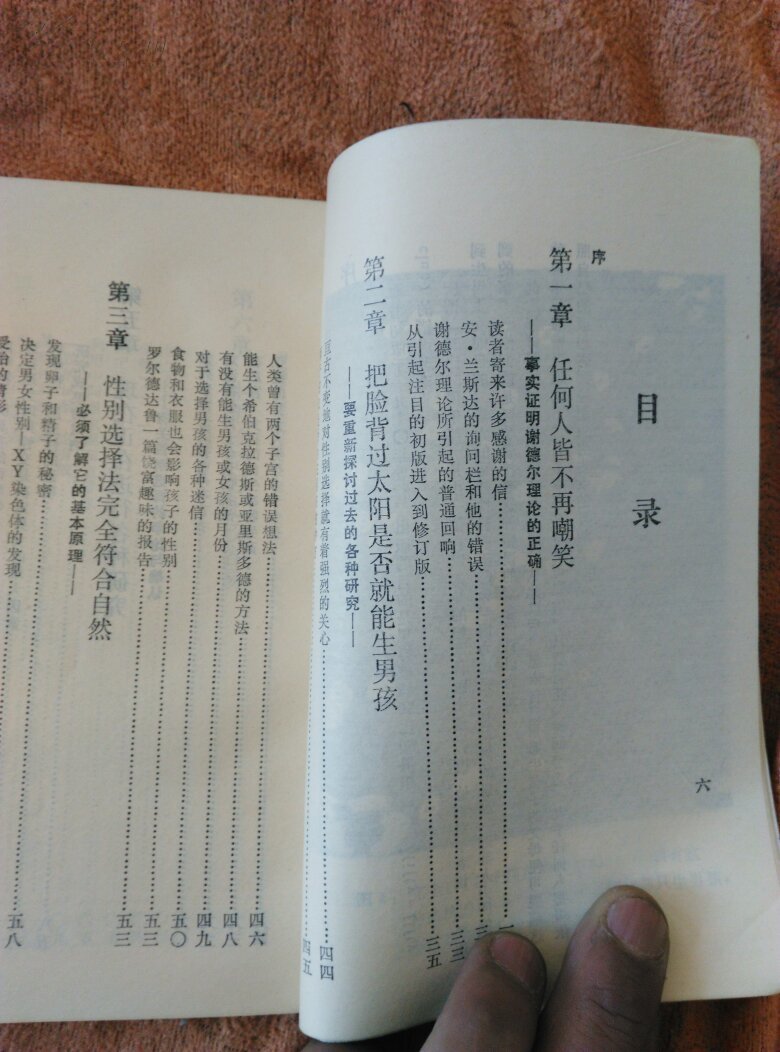 目录
六
序
第一章 任何人皆不再嘲笑
——事实证明谢德尔理论的正确——
读者寄来许多感谢的信
安·兰斯达的询问栏和他的错误
谢德尔理论所引起的普通回响……三三
从引起注目的初版进入到修订版……三五
第二章 把脸背过太阳是否就能生男孩
——要重新探讨过去的各种研究——
对性别选择就有着强烈的关心……四四
四五
人类曾有两个子宫的错误想法……四六
能生个希伯克拉德斯或亚里斯多德的方法
有没有能生男孩或女孩的月份……四八
对于选择男孩的各种迷信……四九
食物和衣服也会影响孩子的性别……五〇
罗尔德达鲁一篇饶富趣味的报告……五三
第三章 性别选择法完全符合自然
——必须了解它的基本原理——
发现卵子和精子的秘密
决定男女性别—XY染色体的发现……五八
受胎的情形